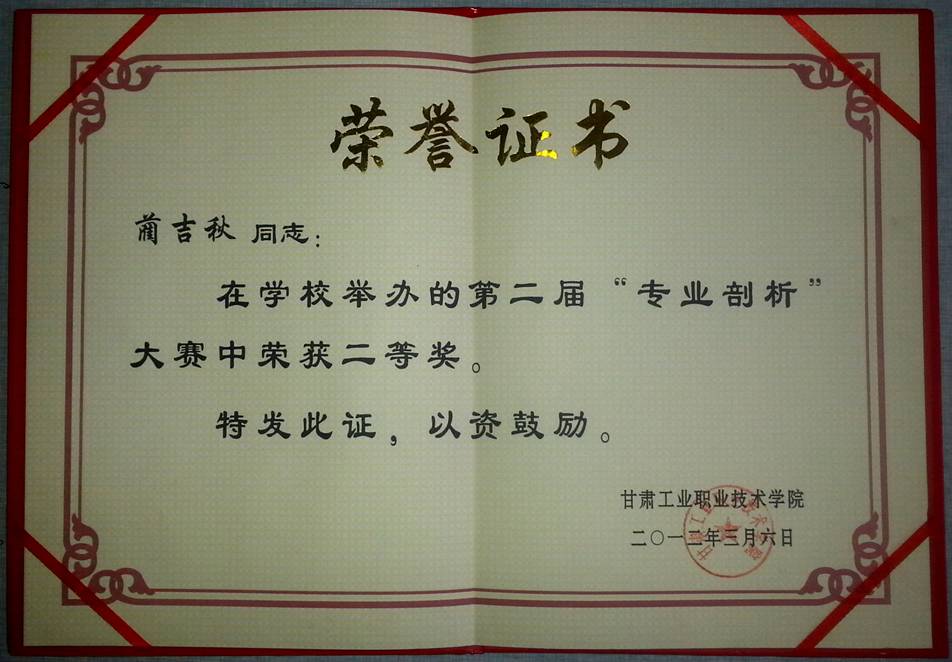 荣誉证书
蔺吉秋 同志：
在学校举办的第二届“专业剖析”
大赛中荣获二等奖。
特发此证，以资鼓励。
甘肃工业职业技术学院
二〇一二年三月六日